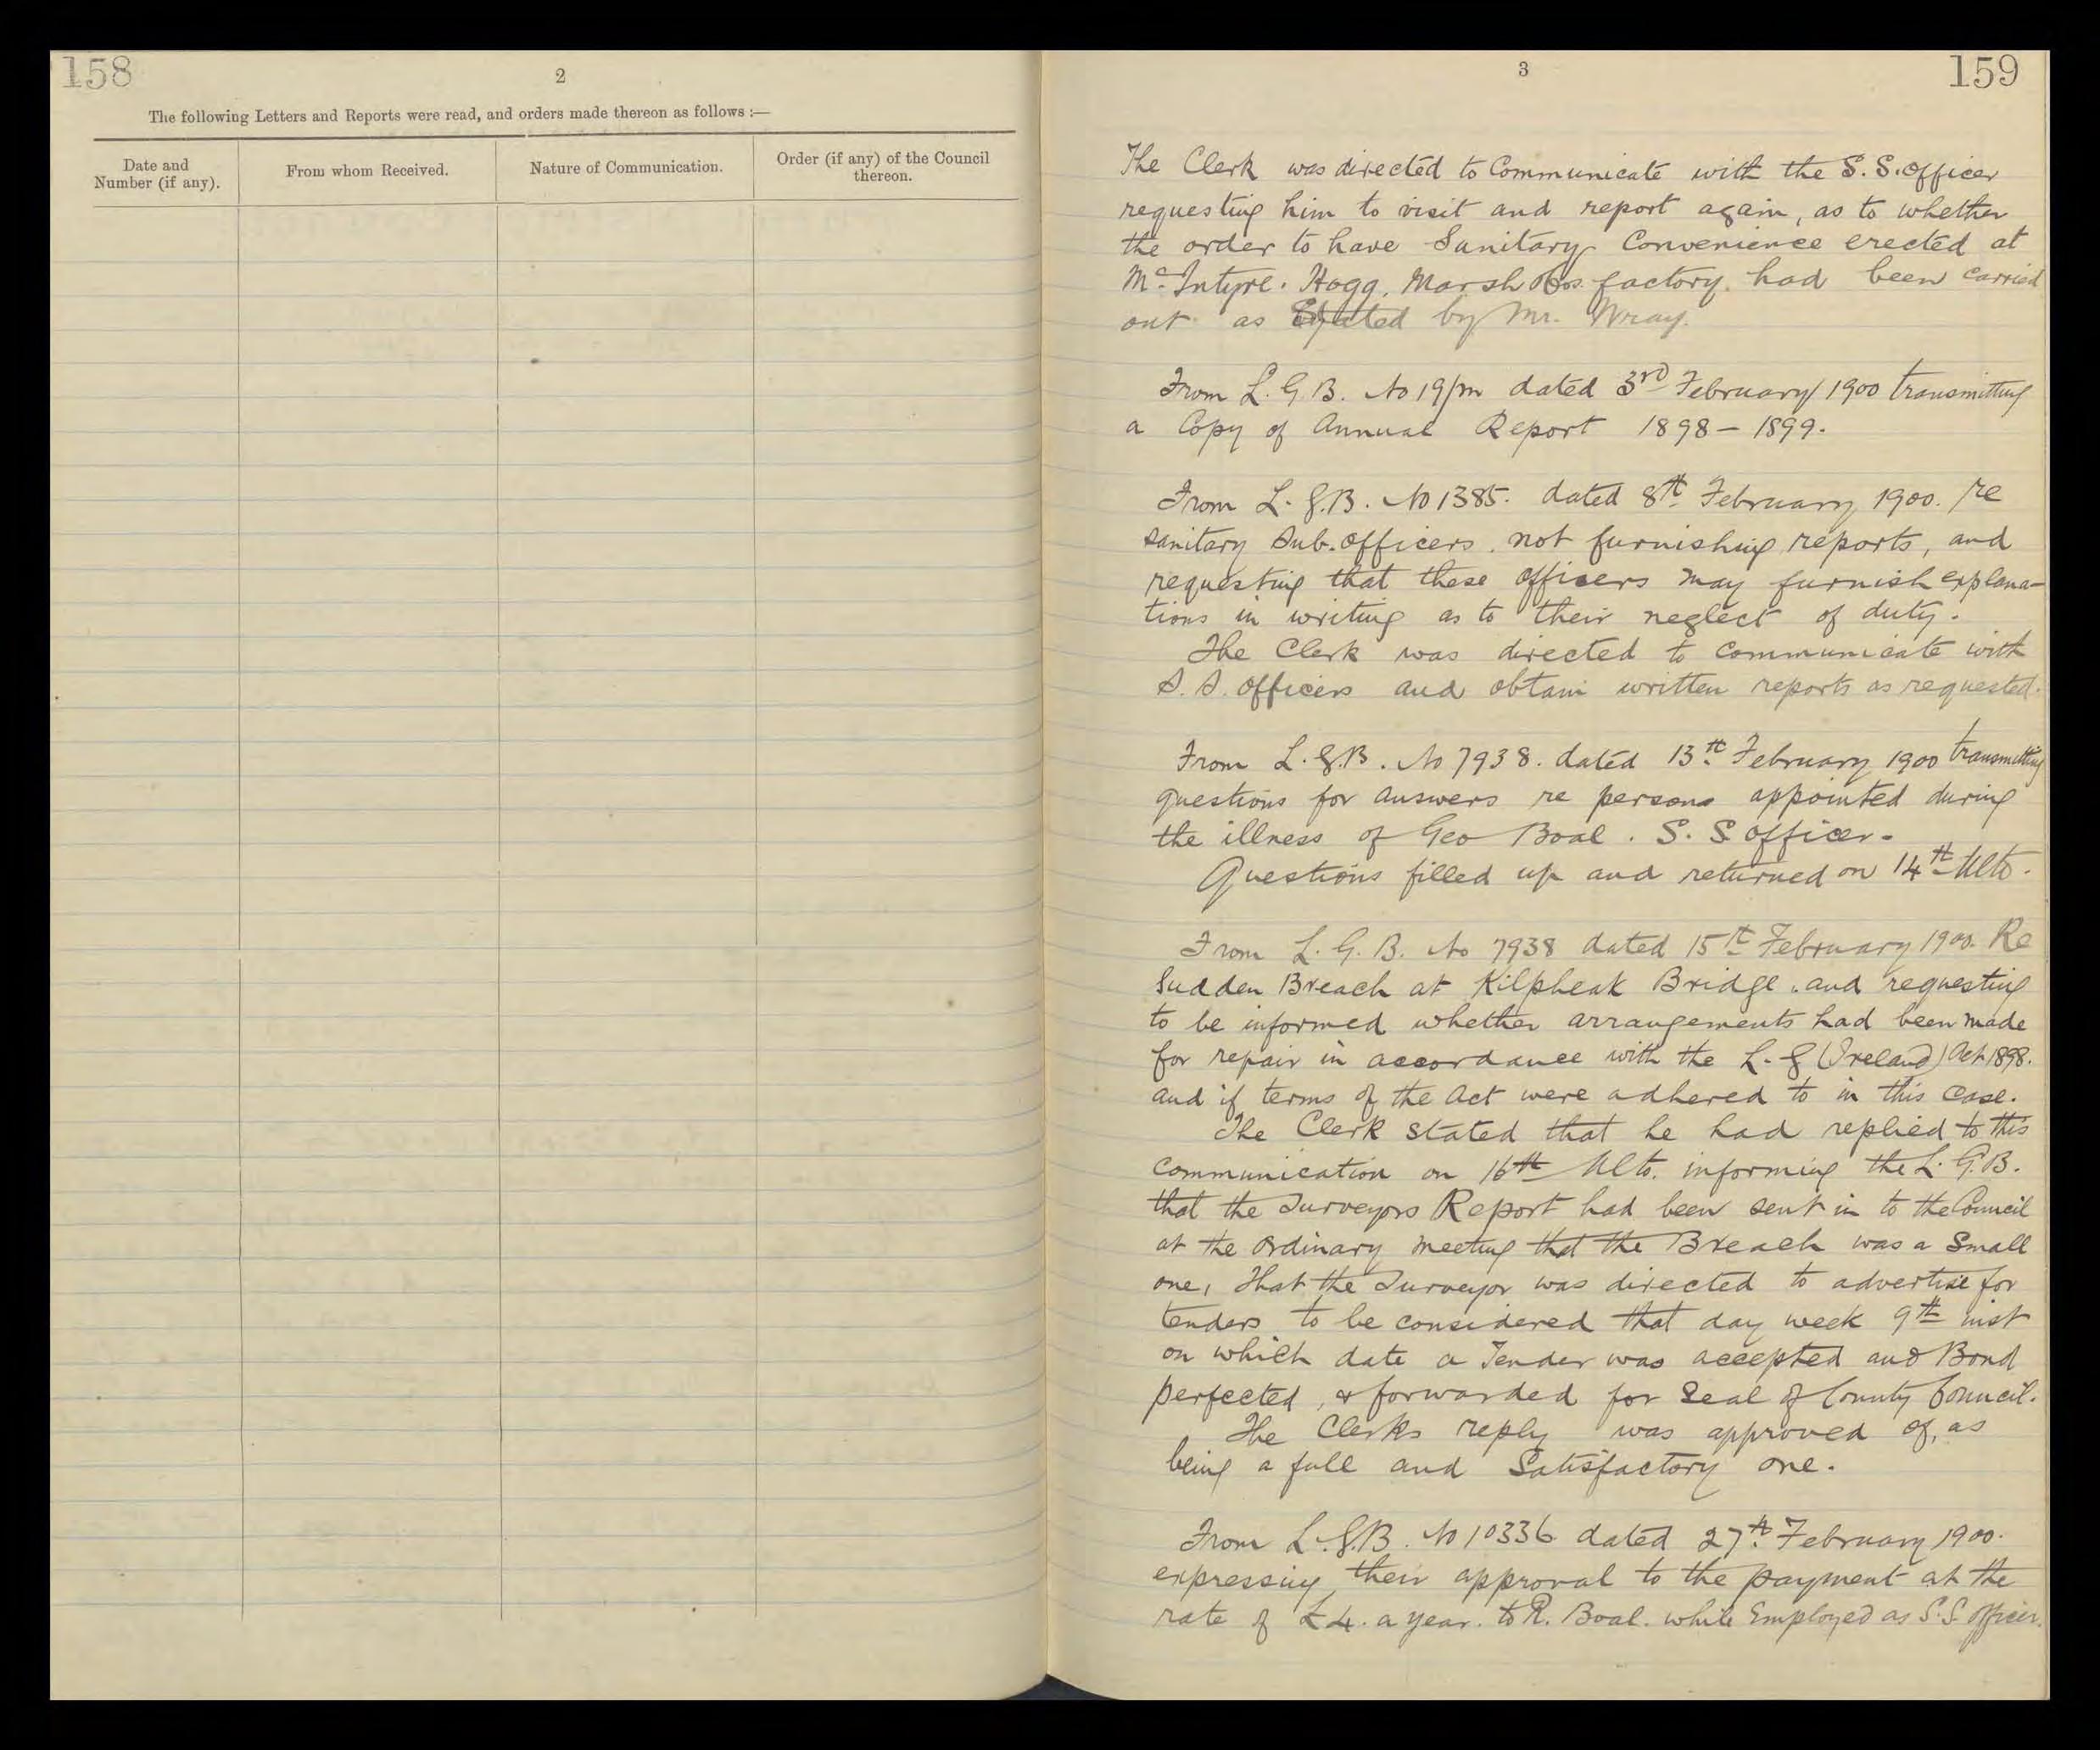 158
2
The following Letters and Reports were read, and orders made thereon as follows :—
Date and
Number (if any).
From whom Received.
Nature of Communication.
Order (if any) of the Council
thereon.
3
159
The Clerk was directed to Communicate with the S. S. Officer
requesting him to visit and report again, as to whether
the order to have Sanitary Convenience erected at
McIntyre. Hogg, Marsh & Cos. factory. had been carried
out as stated by Mr. Wray.
From L. G. B. No 19/m dated 3rd February 1900 transmitting
a Copy of Annual Report 1898 – 1899.
From L. G. B. No 1385. dated 8th February 1900. re
sanitary Sub. officers. not furnishing reports, and
requesting that these officers may furnish explana-
tions in writing as to their neglect of duty.
The Clerk was directed to communicate with
S. S. officers and obtain written reports as requested.
From L. G. B. No 7938. dated 13th February 1900 transmitting
questions for answers re persons appointed during
the illness of Geo Boal. S. S officer.
Questions filled up and returned on 14th Ulto.
From L. G. B. No 7938 dated 15th February 1900. Re
Sudden Breach at Kilpheak Bridge. and requesting
to be informed whether arrangements had been made
for repair in accordance with the L. G (Ireland) Act 1898.
and if terms of the Act were adhered to in this case.
The Clerk stated that he had replied to this
communication on 16th Ulto. informing the L. G. B.
that the Surveyors Report had been sent in to the Council
at the ordinary meeting that the Breach was a Small
one, that the Surveyor was directed to advertise for
tenders to be considered that day week 9th inst
on which date a Tender was accepted and Bond
perfected, & forwarded for Seal of County Council.
The Clerks reply was approved of, as
being a full and Satisfactory one.
From L. G. B. No 10336 dated 27th February 1900.
expressing their approval to the payment at the
rate of £4. a year. to R. Boal. while Employed as S. S. officer.